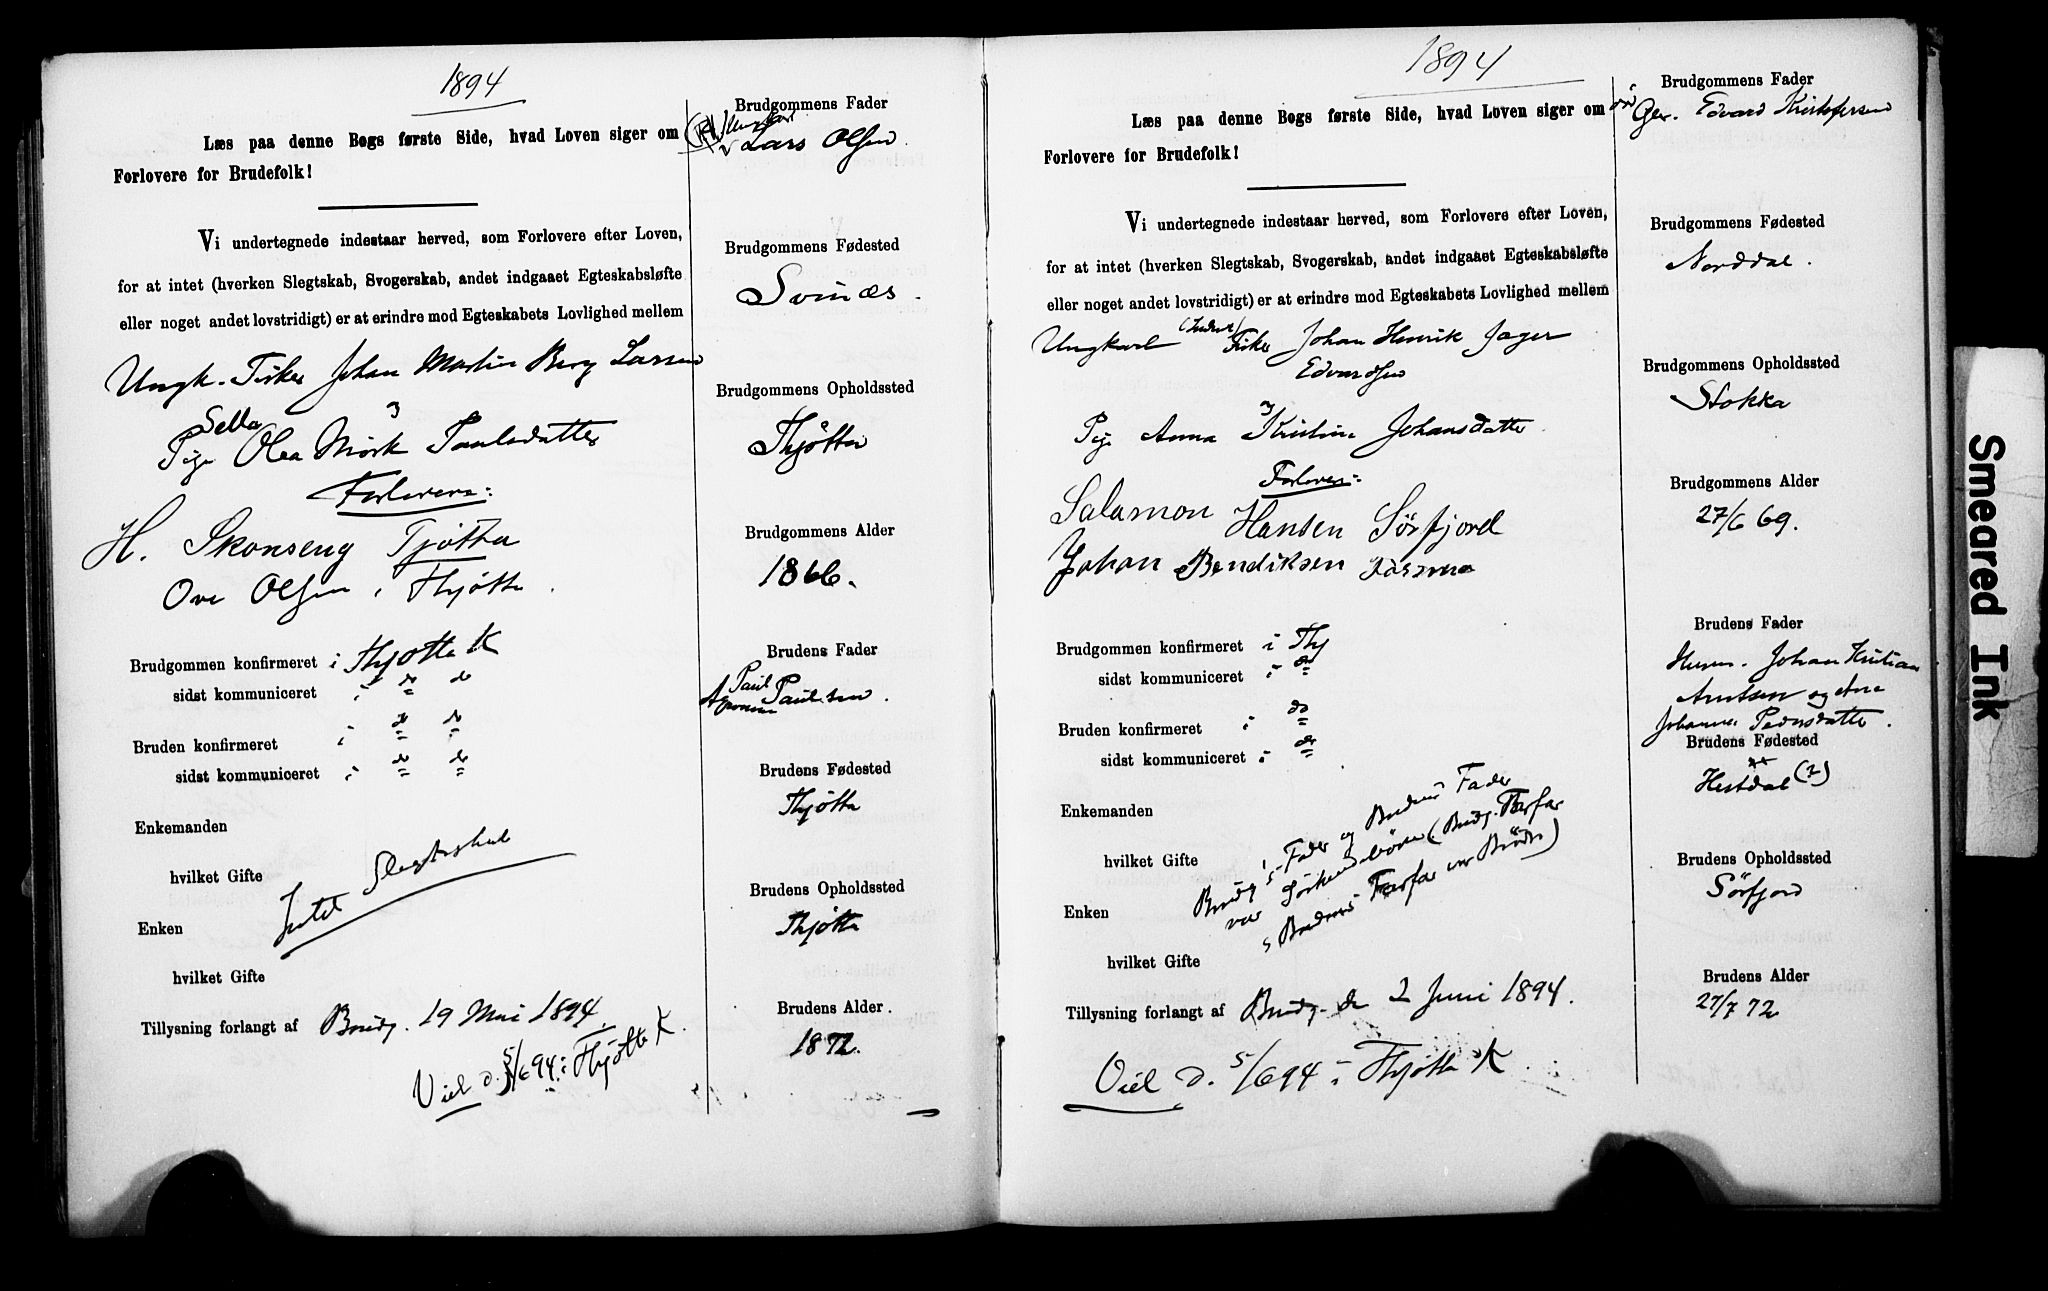 1894
Læs paa denne Bogs første Side, hvad Loven siger om
Forlovere for Brudefolk!
Vi undertegnede indestaar herved, som Forlovere efter Loven,
for at intet (hverken Slegtskab, Svogerskab, andet indgaaet Egteskabsløfte
eller noget andet lovstridigt) er at erindre mod Egteskabets Lovlighed mellem
Ungk. Fisker Johan Martin Berg Larsen
Pige Olea Mørk Paulsdatter
Forlovere:
H. Skonseng Tjøtta
Ove Olsen, Thjøtta.
Brudgommen konfirmeret i Thjøtta K
sidst kommuniceret i do do
Bruden konfirmeret i do do
sidst kommuniceret i do do
Enkemanden
hvilket Gifte
Intet Slegtskab
Enken
hvilket Gifte
Tillysning forlangt af Brudg. 19 Mai 1894.
Viel d. 5/6 94 i Thjøtta K.
Brudgommens Fader
Lars Olsen.
Brudgommens Fødested
Svinæs.
Brudgommens Opholdssted
Thjøtta
Brudgommens Alder
1866.
Brudens Fader
Paul
Paulsen.
Brudens Fødested
Thjøtta
Brudens Opholdssted
Thjøtta
Brudens Alder.
1872.
1894
Læs paa denne Bogs første Side, hvad Loven siger om
Forlovere for Brudefolk!
Vi undertegnede indestaar herved, som Forlovere efter Loven,
for at intet (hverken Slegtskab, Svogerskab, andet indgaaet Egteskabsløfte
eller noget andet lovstridigt) er at erindre mod Egteskabets Lovlighed mellem
Ungkarl Fisker Johan Henrik Jager
Edvardsen
Pige Anna Kristine Johansdatter.
Forlovere:
Salamon Hansen Sørfjord
Johan Bendiksen
Brudgommen konfirmeret i Thj
sidst kommuniceret i do
Bruden konfirmeret i do
sidst kommuniceret i do
Enkemanden
hvilket Gifte
Brudg's Fader og Brudens Fader
var Søskendebørn (Brudg. Farfar
Enken
, Brudens Farfar var Brødre)
hvilket Gifte
Tillysning forlangt af Brudg. de 2 Juni 1894.
Viel d. 5/6 94 i Thjøtta K.
Brudgommens Fader
Edvard Kristofersen
Brudgommens Fødested
Norddal.
Brudgommens Opholdssted
Stokka
Brudgommens Alder
27/6 69.
Brudens Fader
Husm. Johan Kristian
Arntsen og Ane
Johanna Pedersdatter.
Brudens Fødested
Hestdal (?)
Brudens Opholdssted
Sørfjord
Brudens Alder
27/7 72
Smeared Ink